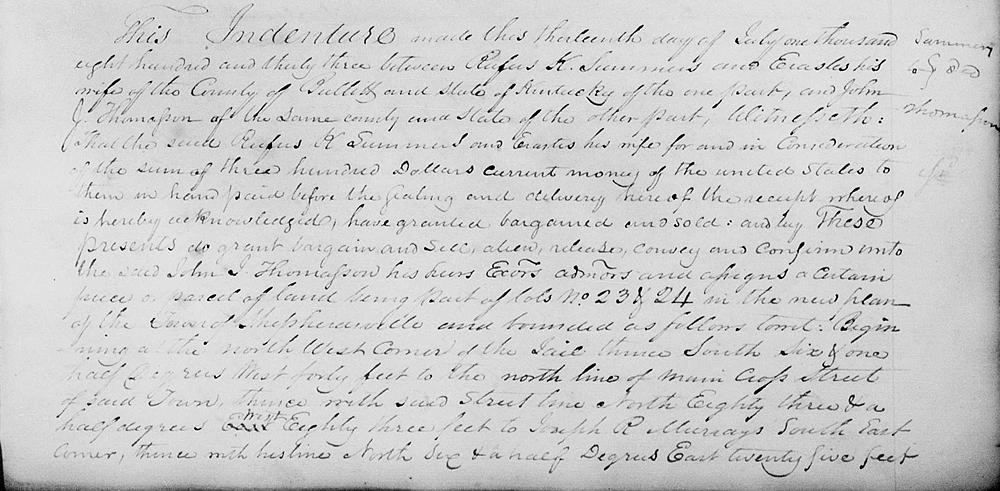 This Indenture made this thirteenth day of July one thousand
eight hundred and thirty three between Rufus K. Summers and his
wife of the County of Bullitt and state of Kentucky of the one part, and John
J. Thomasson of the same county and state of the other part, Witnesseth:
That the said Rufus K Summers and his wife for and in Consideration
of the sum of three hundred Dollars current money of the united States to
them in hand paid before the sealing and delivery hereof the receipt whereof
is hereby acknowledged, have granted bargained and sold: and by These
presents do grant bargain and Sell, alien, release, convey and Confirm unto
the said John J. Thomasson his heirs Exors admors and assigns a Certain
piece or parcel of land being part of lots No 23 & 24 in the new plan
of the Town of Shepherdsville and bounded as follows towit: Begin
ning at the north West Corner of the Jail thence South Six & one
half Degrees West forty feet to the north line of main Cross Street
of said Town, thence with said Street line North Eighty three & a
half degrees West Eighty three feet to Joseph R Murrays South East
Corner, thence with his line North Six & a half Degrees East twenty five feet
Summers
to
Thomasson